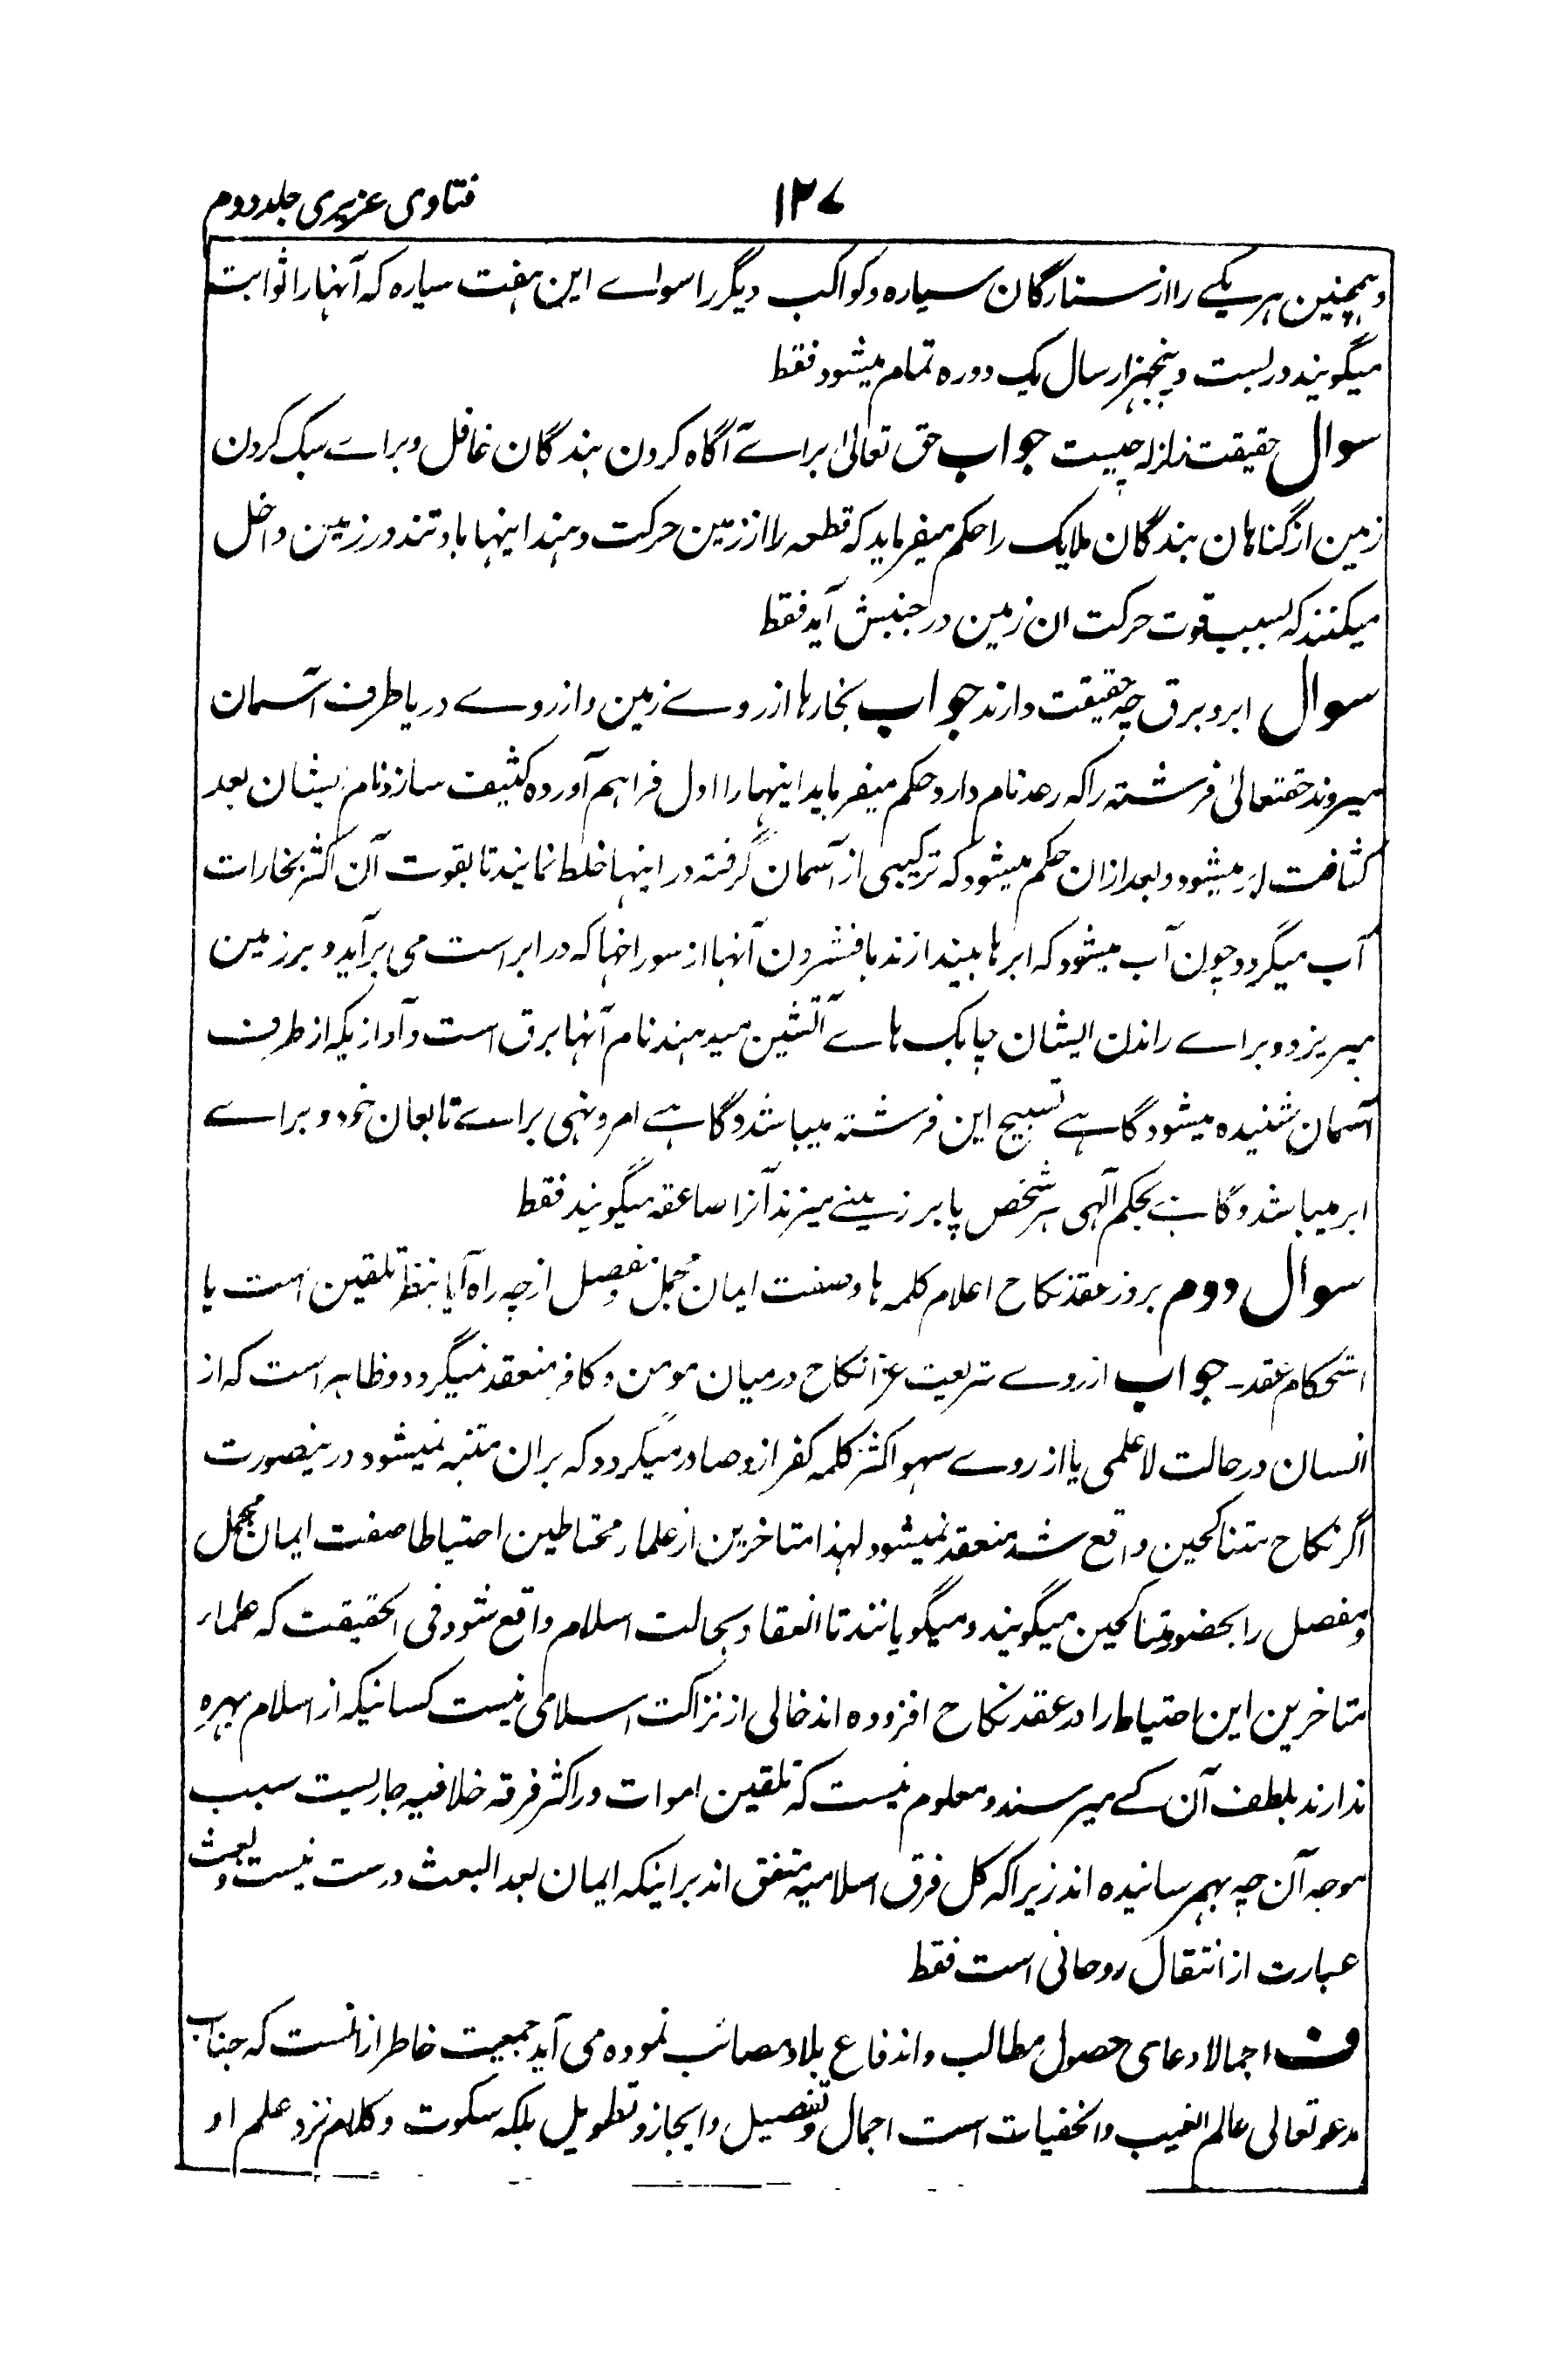 فتاوی عزیزی جلد دوم
۱۲۷
وہمچنین ہر یکے را از ستارگان سیارہ وکواکب دیگر را سواے این ہفت سیارہ کہ آنہا را ثوابت
میگویند در بست و پنجہزار سال یک دورہ تمام میشود فقط
سوال حقیقت زلزلہ چیست جواب حق تعالیٰ براے آگاہ کردن بندگان غافل وبراے سبک کردن
زمین از گناہان بندگان ملایک را حکم میفرماید کہ قطعہ را از زمین حرکت دہند اینہا باد تند در زمین داخل
میکنند کہ بسبب قوت حرکت ان زمین در جنبش آید فقط
سوال ابر و برق چہ حقیقت دارند جواب بخارہا از روے زمین و از روے دریا طرف آسمان
میروند حقتعالیٰ فرشتہ را کہ رعد نام دارد حکم میفرماید اینہا را اول فراہم آوردہ کثیف سازد نام ایشان بعد
کثافت ابر میشود و بعد ازان حکم میشود کہ ترکیبی از آسمان گرفتہ در اینہا خلط نمایند تا بقوت آن اکثر بخارات
آب میگردد چون آب میشود کہ ابرہا بیندازند بافشردن آنہا از سوراخہا کہ در ابر است می برآید و بر زمین
میریزد و براے راندن ایشان چابک ہاے آتشین میدہند نام آنہا برق است و آوازیکہ از طرف
آسمان شنیدہ میشود گاہے تسبیح این فرشتہ میباشد و گاہے امر و نہی براے تابعان خود و براے
ابر میباشد و گاہے بحکم الٰہی ہر شخص یا بر زمینے میزند آنرا صاعقہ میگویند فقط
سوال دوم بروز عقد نکاح اعلام کلمہ ہا و صفت ایمان مجمل و مفصل از چہ راہ آیا بنظر تلقین است یا
استحکام عقد۔ جواب از روے شریعت غرا نکاح درمیان مومن و کافر منعقد نمیگردد و ظاہر است کہ از
انسان در حالت لاعلمی یا از روے سہو اکثر کلمہ کفر ازو صادر میگردد کہ بران متنبہ نمیشود درینصورت
اگر نکاح متناکحین واقع شد منعقد نمیشود لہذا متاخرین از علماء محتاطین احتیاطا صفت ایمان مجمل
و مفصل را بحضور متناکحین میگویند و میگویانند تا انعقاد بحالت اسلام واقع شود فی الحقیقت کہ علماء
متاخرین این احتیاط را در عقد نکاح افزودہ اند خالی از نزاکت اسلامی نیست کسانیکہ از اسلام بہرہ
ندارند بلطف آن کے میرسند و معلوم نیست کہ تلقین اموات در اکثر فرقہ خلافیہ جاریست سبب
موجہ آن چہ بہم رسانیدہ اند زیرا کہ کل فرق اسلامیہ متفق اند بر اینکہ ایمان بعد البعث درست نیست و بعث
عبارت از انتقال روحانی است فقط
ف اجمالا دعای حصول مطالب و اندفاع بلا و مصائب نمودہ می آید جمعیت خاطر ازانست کہ جناب
مدعو تعالی عالم الغیب والخفیات است اجمال و تفصیل و ایجاز و تطویل بلکہ سکوت و کلام نزد علم او